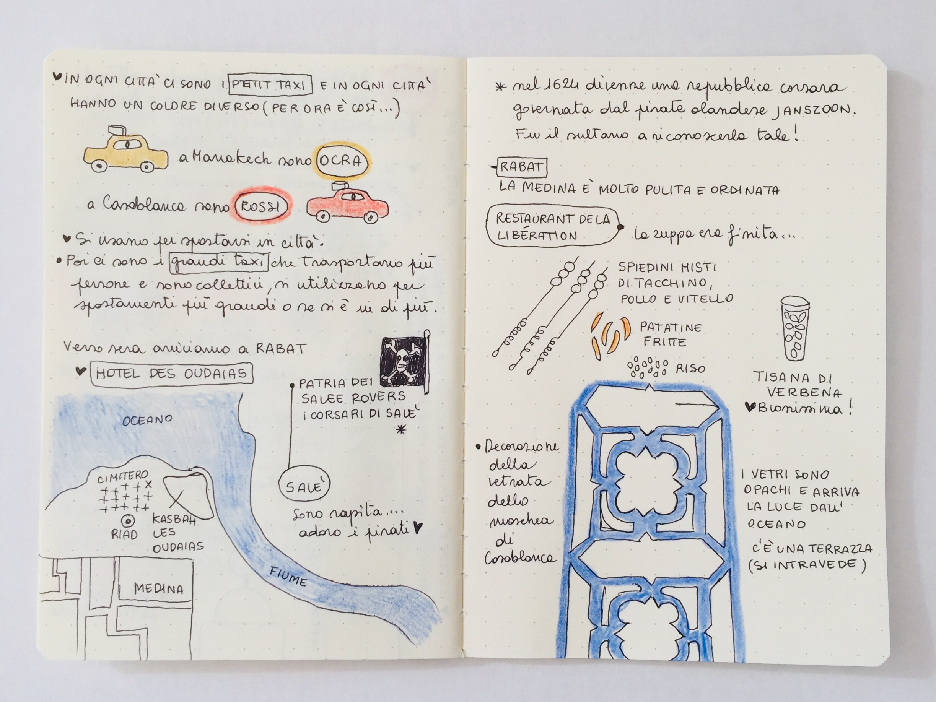 ♥ IN OGNI CITTA' CI SONO I PETIT TAXI E IN OGNI CITTA'
HANNO UN COLORE DIVERSO (PER ORA È COSÌ...)
a Marrakech sono OCRA
a Casablanca sono ROSSI
♥ Si usano per spostarsi in città.
• Poi ci sono i grandi taxi che trasportano più
persone e sono collettivi, si utilizzano per
spostamenti più grandi o se si è in di più.
Verso sera arriviamo a RABAT
♥ HOTEL DES OUDAIAS
• PATRIA DEI
SALEE ROVERS
I CORSARI DI SALE'
*
OCEANO
CIMITERO
RIAD
KASBAH
LES
OUDAIAS
MEDINA
FIUME
SALE'
Sono rapita...
adoro i pirati ♥
* nel 1624 divenne una repubblica corsara
governata dal pirata olandese JANSZOON.
Fu il sultano a riconoscerla tale!
- RABAT
LA MEDINA È MOLTO PULITA E ORDINATA
RESTAURANT DE LA
LIBÉRATION
• la zuppa era finita...
SPIEDINI MISTI
DI TACCHINO,
POLLO E VITELLO
PATATINE
FRITTE
RISO
TISANA DI
VERBENA
♥ Buonissima!
• Decorazione
della
vetrata
della
moschea
di
Casablanca
I VETRI SONO
OPACHI E ARRIVA
LA LUCE DALL'
OCEANO
C'È UNA TERRAZZA
(SI INTRAVEDE)